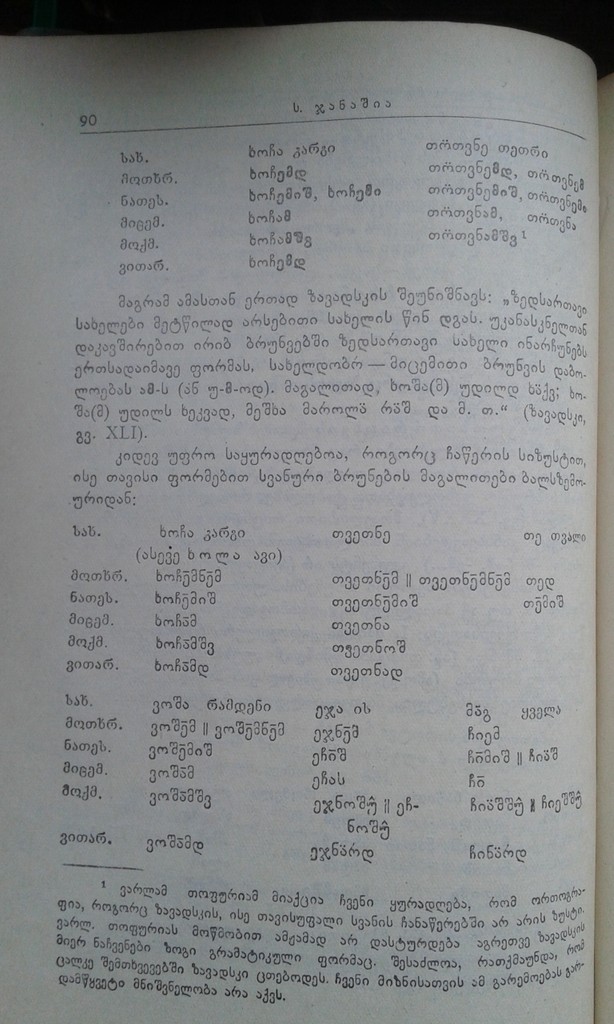 90
ს. ჯანაშია
სახ. ხოჩა კარგი თო̈თვნე თეთრი
მოთხრ. ხოჩემდ თო̈თვნემდ, თო̈თვნემ
ნათეს. ხოჩემიშ, ხოჩემი თო̈თვნემიშ, თო̈თვნემი
მიცემ. ხოჩამ თო̈თვნამ, თო̈თვნა
მოქმ. ხოჩამშვ თო̈თვნამშვ¹
ვითარ. ხოჩემდ
მაგრამ ამასთან ერთად ზავადსკის შეუნიშნავს: „ზედსართავი
სახელები მეტწილად არსებითი სახელის წინ დგას. უკანასკნელთან
დაკავშირებით ირიბ ბრუნვებში ზედსართავი სახელი ინარჩუნებს
ერთსადაიმავე ფორმას, სახელდობრ — მიცემითი ბრუნვის დაბო-
ლოებას ამ-ს (ან უ-მ-ოდ). მაგალითად, ხოშა(მ) უდილდ ხა̈ქვ; ხო-
შა(მ) უდილს ხეკვად, მეშხა მაროლა̈ რა̈შ და მ. თ.“ (ზავადსკი,
გვ. XLI).
კიდევ უფრო საყურადღებოა, როგორც ჩაწერის სიზუსტით,
ისე თავისი ფორმებით სვანური ბრუნების მაგალითები ბალსზემო-
ურიდან:
სახ. ხოჩა კარგი თვეთნე თე თვალი
(ასევე ხოლა ავი)
მოთხრ. ხოჩე̄მნე̄მ თვეთნე̄მ || თვეთნე̄მნე̄მ თედ
ნათეს. ხოჩე̄მიშ თვეთნე̄მიშ თე̄მიშ
მიცემ. ხოჩა̄მ თვეთნა
მოქმ. ხოჩა̄მშვ თვეთნოშ
ვითარ. ხოჩა̄მდ თვეთნად
სახ. ვოშა რამდენი ეჯა ის მა̈გ ყველა
მოთხრ. ვოშე̄მ || ვოშე̄მნე̄მ ეჯნე̄მ ჩიემ
ნათეს. ვოშე̄მიშ ეჩი̄შ ჩი̄მიშ || ჩია̈შ
მიცემ. ვოშა̄მ ეჩას ჩი̄
მოქმ. ვოშა̄მშვ ეჯნოშუ̂ || ეჩ- ჩია̈შშუ̂ || ჩიეშშუ̂
ნოშუ̂
ვითარ. ვოშა̄მდ ეჯნა̈რდ ჩინა̈რდ
¹ ვარლამ თოფურიამ მიაქცია ჩვენი ყურადღება, რომ ორთოგრა-
ფია, როგორც ზავადსკის, ისე თავისუფალი სვანის ჩანაწერებში არ არის ზუსტი.
ვარლ. თოფურიას მოწმობით ამჟამად არ დასტურდება აგრეთვე ზავადსკის
მიერ ნაჩვენები ზოგი გრამატიკული ფორმაც. შესაძლოა, რათქმაუნდა, რომ
ცალკე შემთხვევებში ზავადსკი ცთებოდეს. ჩვენი მიზნისათვის ამ გარემოებას გარ-
დამწყვეტი მნიშვნელობა არა აქვს.